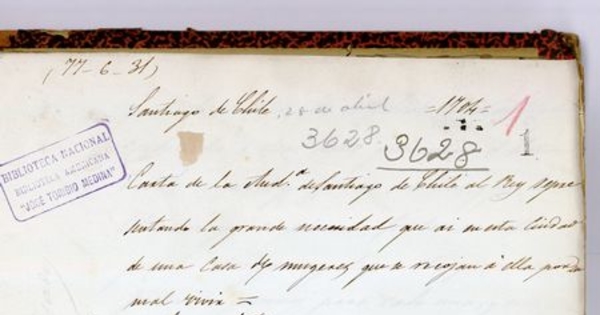 (77-6-31)
Santiago de Chile, 28 de abril =1704= 1
3628. 3628 1
BIBLIOTECA NACIONAL
BIBLIOTECA AMERICANA
"JOSÉ TORIBIO MEDINA"
Carta de la Aud.ª de Santiago de Chile al Rey repre
sentando la grande necesidad que ai en esta Ciudad
de una Casa de mugeres que se recojan á ella por su
mal vivir =